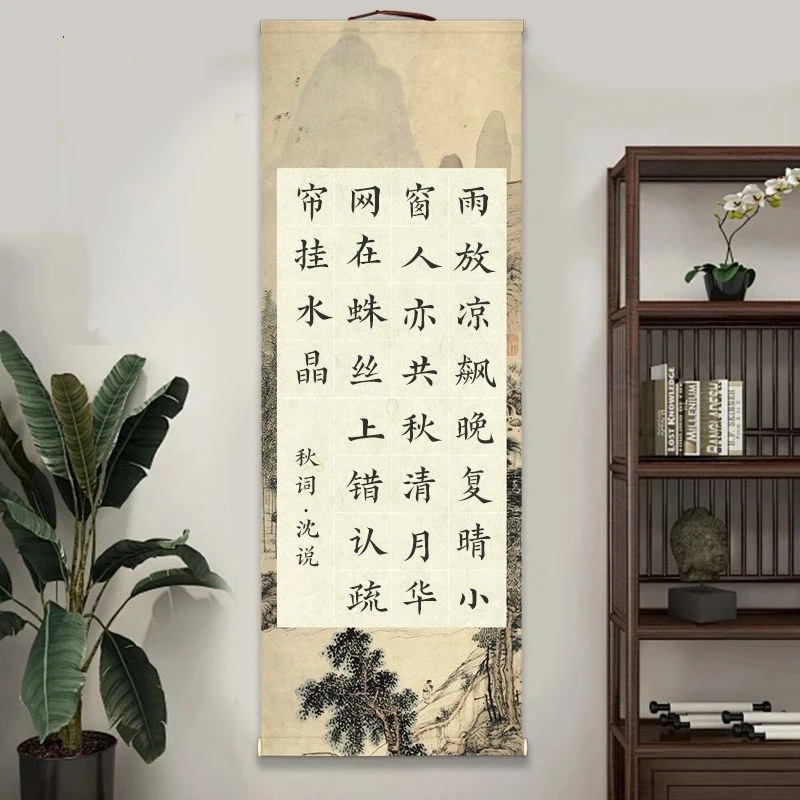 雨放凉飙晚复晴小
窗人亦共秋清月华
网在蛛丝上错认疏
帘挂水晶
秋词·沈说
KNOWLEDGE
MILLENIUM
BANGLADESH